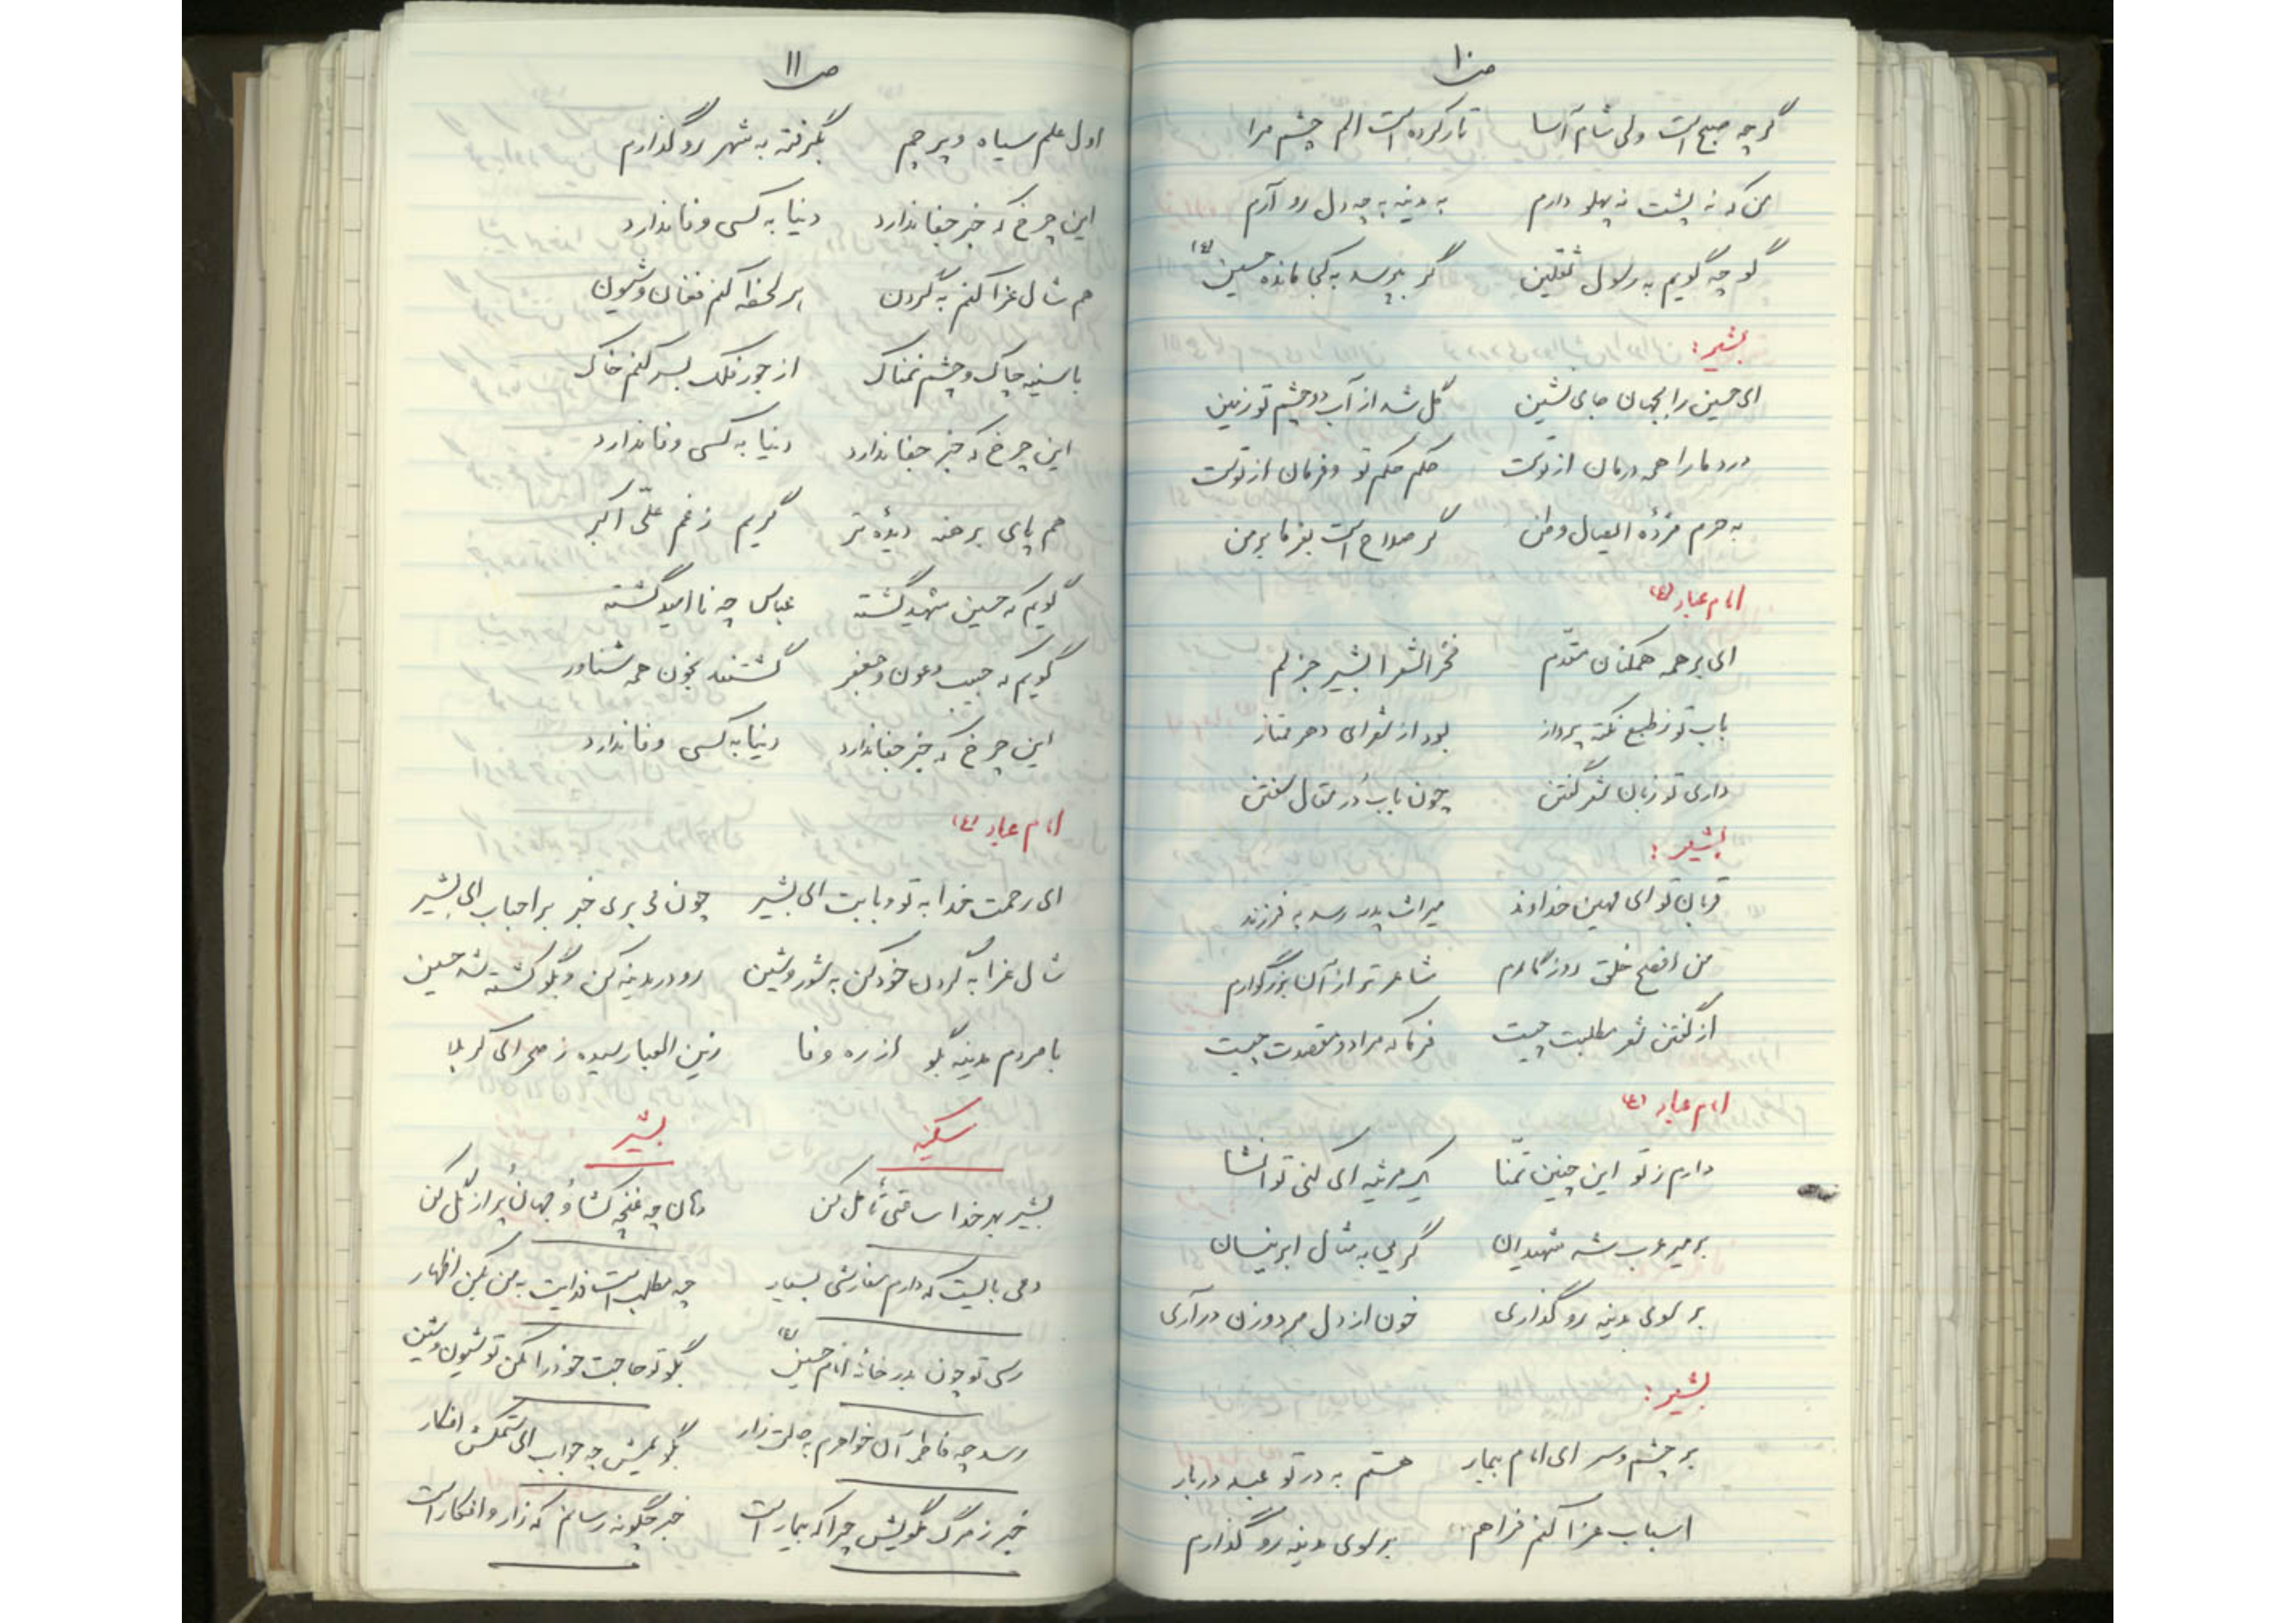 ص۱۰
گرچه صبح است ولی شام آسا تار کرده است الم چشم مرا
من که نه پشت نه پهلو دارم به مدینه به چه دل رو آرم
گو چه گویم به رسول ثقلین گر بپرسد به کجا مانده حسین (ع)
بشیر:
ای حسین را بجهان جای نشین گل شد از آب دو چشم تو زمین
درد ما را همه درمان از توست حکم حکم تو و فرمان از توست
به حرم مژده وطن گر صلاح است بفرما بر من
امام عباد (ع)
ای بر همه همگنان مقدّم فخر الشعرا بشیر جزلم
باب تو ز طبع نکته پرداز بود از شعرای دهر ممتاز
داری تو زبان شعر گفتن چون باب دُر مقال سفتن
بشیر:
قربان تو ای مهین خداوند میراث پدر رسد به فرزند
من افصح خلق روزگارم شاعرتر از آن بزرگوارم
از گفتن شعر مطلبت چیست فرما که مراد و مقصدت چیست
امام عباد (ع)
دارم ز تو این چنین تمنّا یک مرثیه ای کنی تو انشا
بر میر عرب شه شهیدان گریی به مثال ابر نیسان
بر سوی مدینه رو گذاری خون از دل مرد و زن در آری
بشیر:
بر چشم و سر ای امام بیمار هستم به در تو عبد دربار
اسباب عزا کنم فراهم بر سوی مدینه رو گذارم
ص۱۱
اول علم سیاه و پرچم بگرفته به شهر رو گذارم
این چرخ که جز جفا ندارد دنیا به کسی وفا ندارد
هم شال عزا کنم به گردن هر لحظه کنم فغان و شیون
با سینه چاک و چشم نمناک از جور فلک بسر کنم خاک
این چرخ که جز جفا ندارد دنیا به کسی وفا ندارد
هم پای برهنه دیدهٔ تر گریم ز غم علّی اکبر
گویم که حسین شهید گشته عباس چه نا امید گشته
گویم که حبیب و عون و جعفر گشتند بخون همه شناور
این چرخ که جز جفا ندارد دنیا به کسی وفا ندارد
امام عباد (ع)
ای رحمت خدا به تو و بابت ای بشیر چون می بری خبر بر احباب ای بشیر
شال عزا به گردن خود کن به شور و شین رو در مدینه کن و بگو کشته شد حسین
با مردم مدینه بگو از ره وفا زین العباد رسیده ز صحرای کربلا
سکینه بشیر
بشیر بهر خدا ساعتی تأمل کن دهان چه غنچه گشا و جهان پر از گل کن
دمی بایست که دارم سفارشی بسیار چه مطلب است فدایت به من بکن اظهار
رسی تو چون بدر خانهٔ امام حسین (ع) بگو تو حاجت خود را مکن تو شیون و شین
رسد چه فاطمه آن خواهرم به حالت زار بگویمش چه جواب ای ستمکش افکار
خبر ز مرگ مگویش چرا که بیمار است خبر چگونه رسانم که زار و افکار است